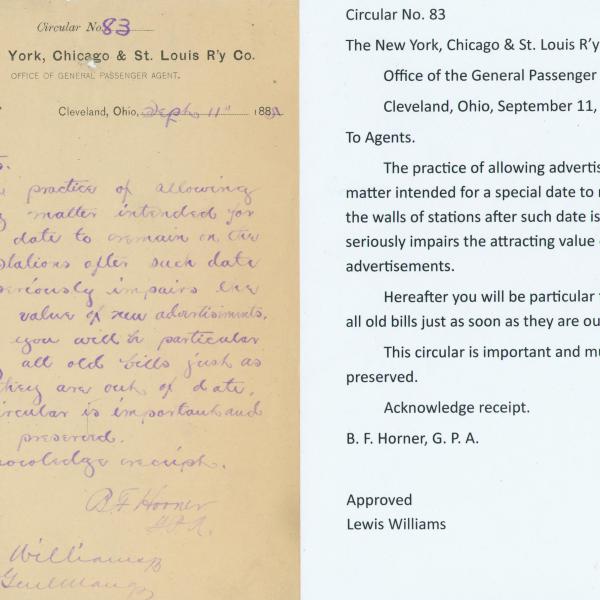 Circular No. 83
York, Chicago & St. Louis R'y Co.
OFFICE OF GENERAL PASSENGER AGENT.
Cleveland, Ohio, Sept. 11" 188
practice of allowing
matter intended for
date to remain on the
stations after such date
seriously impairs the
value of new advertisements.
you will be particular
all old bills just as
they are out of date.
circular is important and
preserved.
receipt.
B F Horner
G.P.A.
Williams
Genl Mang
Circular No. 83
The New York, Chicago & St. Louis R'y
Office of the General Passenger
Cleveland, Ohio, September 11,
To Agents.
The practice of allowing advertis
matter intended for a special date to
the walls of stations after such date is
seriously impairs the attracting value
advertisements.
Hereafter you will be particular
all old bills just as soon as they are ou
This circular is important and mu
preserved.
Acknowledge receipt.
B. F. Horner, G. P. A.
Approved
Lewis Williams